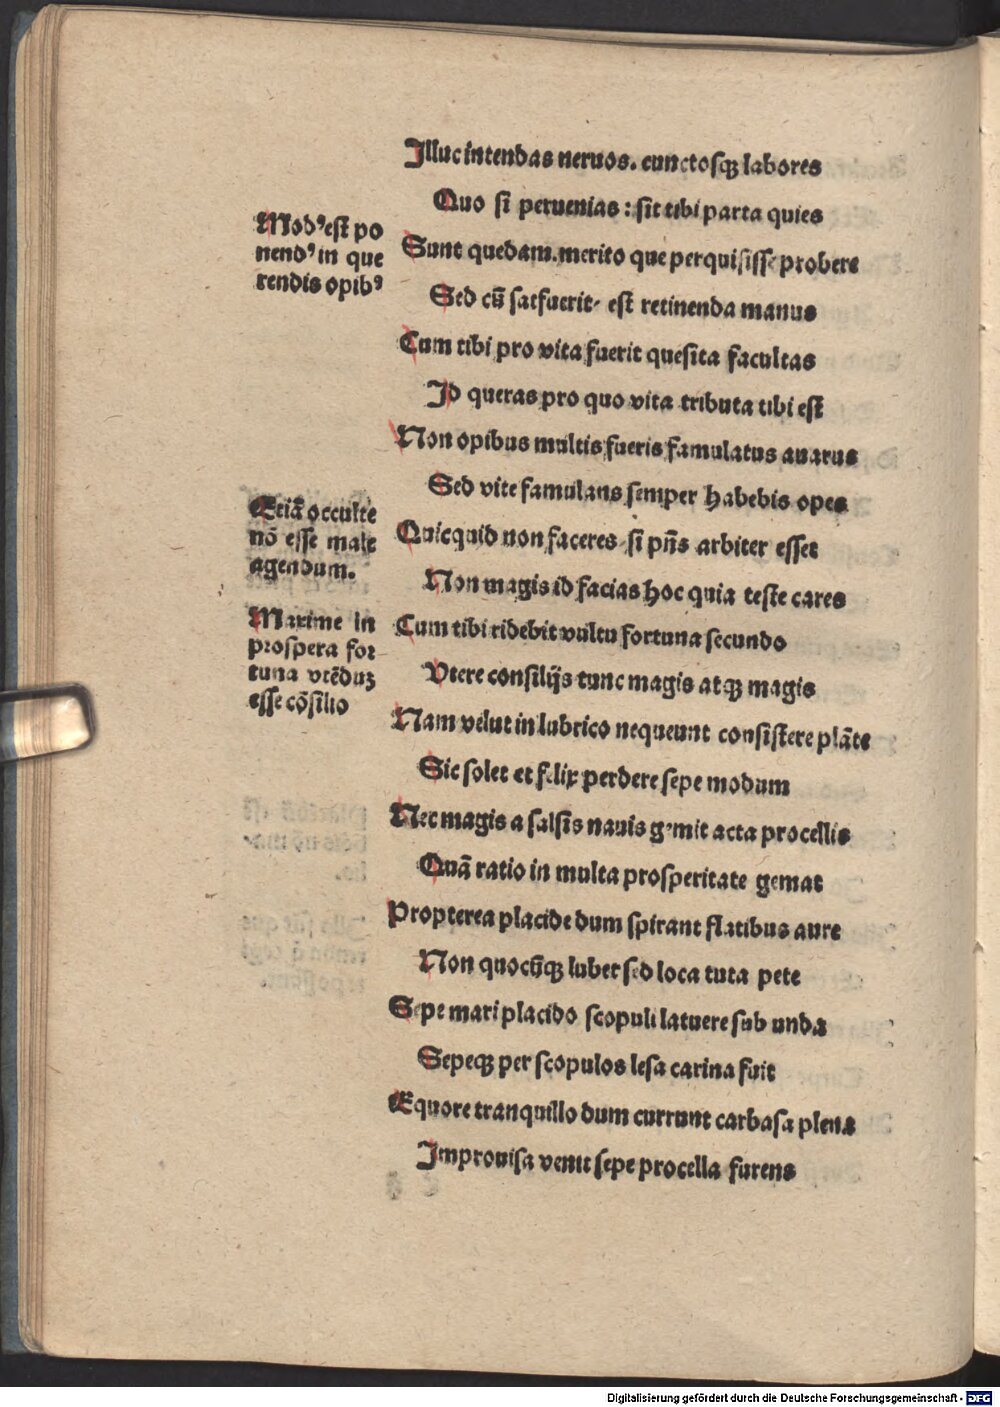 Illuc intendas neruos. cunctosqꝫ labores
Quo si peruenias : sit tibi parta quies
Modꝰ est po
nendꝰ in que
rendis opibꝰ
Sunt quedam. merito que perquisisse probere
Sed cū sat fuerit. est retinenda manus
Cum tibi pro vita fuerit quesita facultas
Id queras pro quo vita tributa tibi est
Non opibus multis fueris famulatus auarus
Sed vite famulans semper habebis opes
Etiā occulte
nō esse male
agendum.
Quicquid non faceres si pn̄s arbiter esset
Non magis id facias hoc quia teste cares
Maxime in
prospera for
tuna vtēduꝫ
esse cōsilio
Cum tibi ridebit vultu fortuna secundo
Vtere consilijs tunc magis atqꝫ magis
Nam velut in lubrico nequeunt consistere plāte
Sic solet et felix perdere sepe modum
Nec magis a salsis nauis gemit acta procellis
Quā ratio in multa prosperitate gemat
Propterea placide dum spirant flatibus aure
Non quocūqꝫ lubet sed loca tuta pete
Sepe mari placido scopuli latuere sub unda
Sepeqꝫ per scopulos lesa carina fuit
Equore tranquillo dum currunt carbasa plena
Improuisa venit sepe procella furens
Digitalisierung gefördert durch die Deutsche Forschungsgemeinschaft - DFG